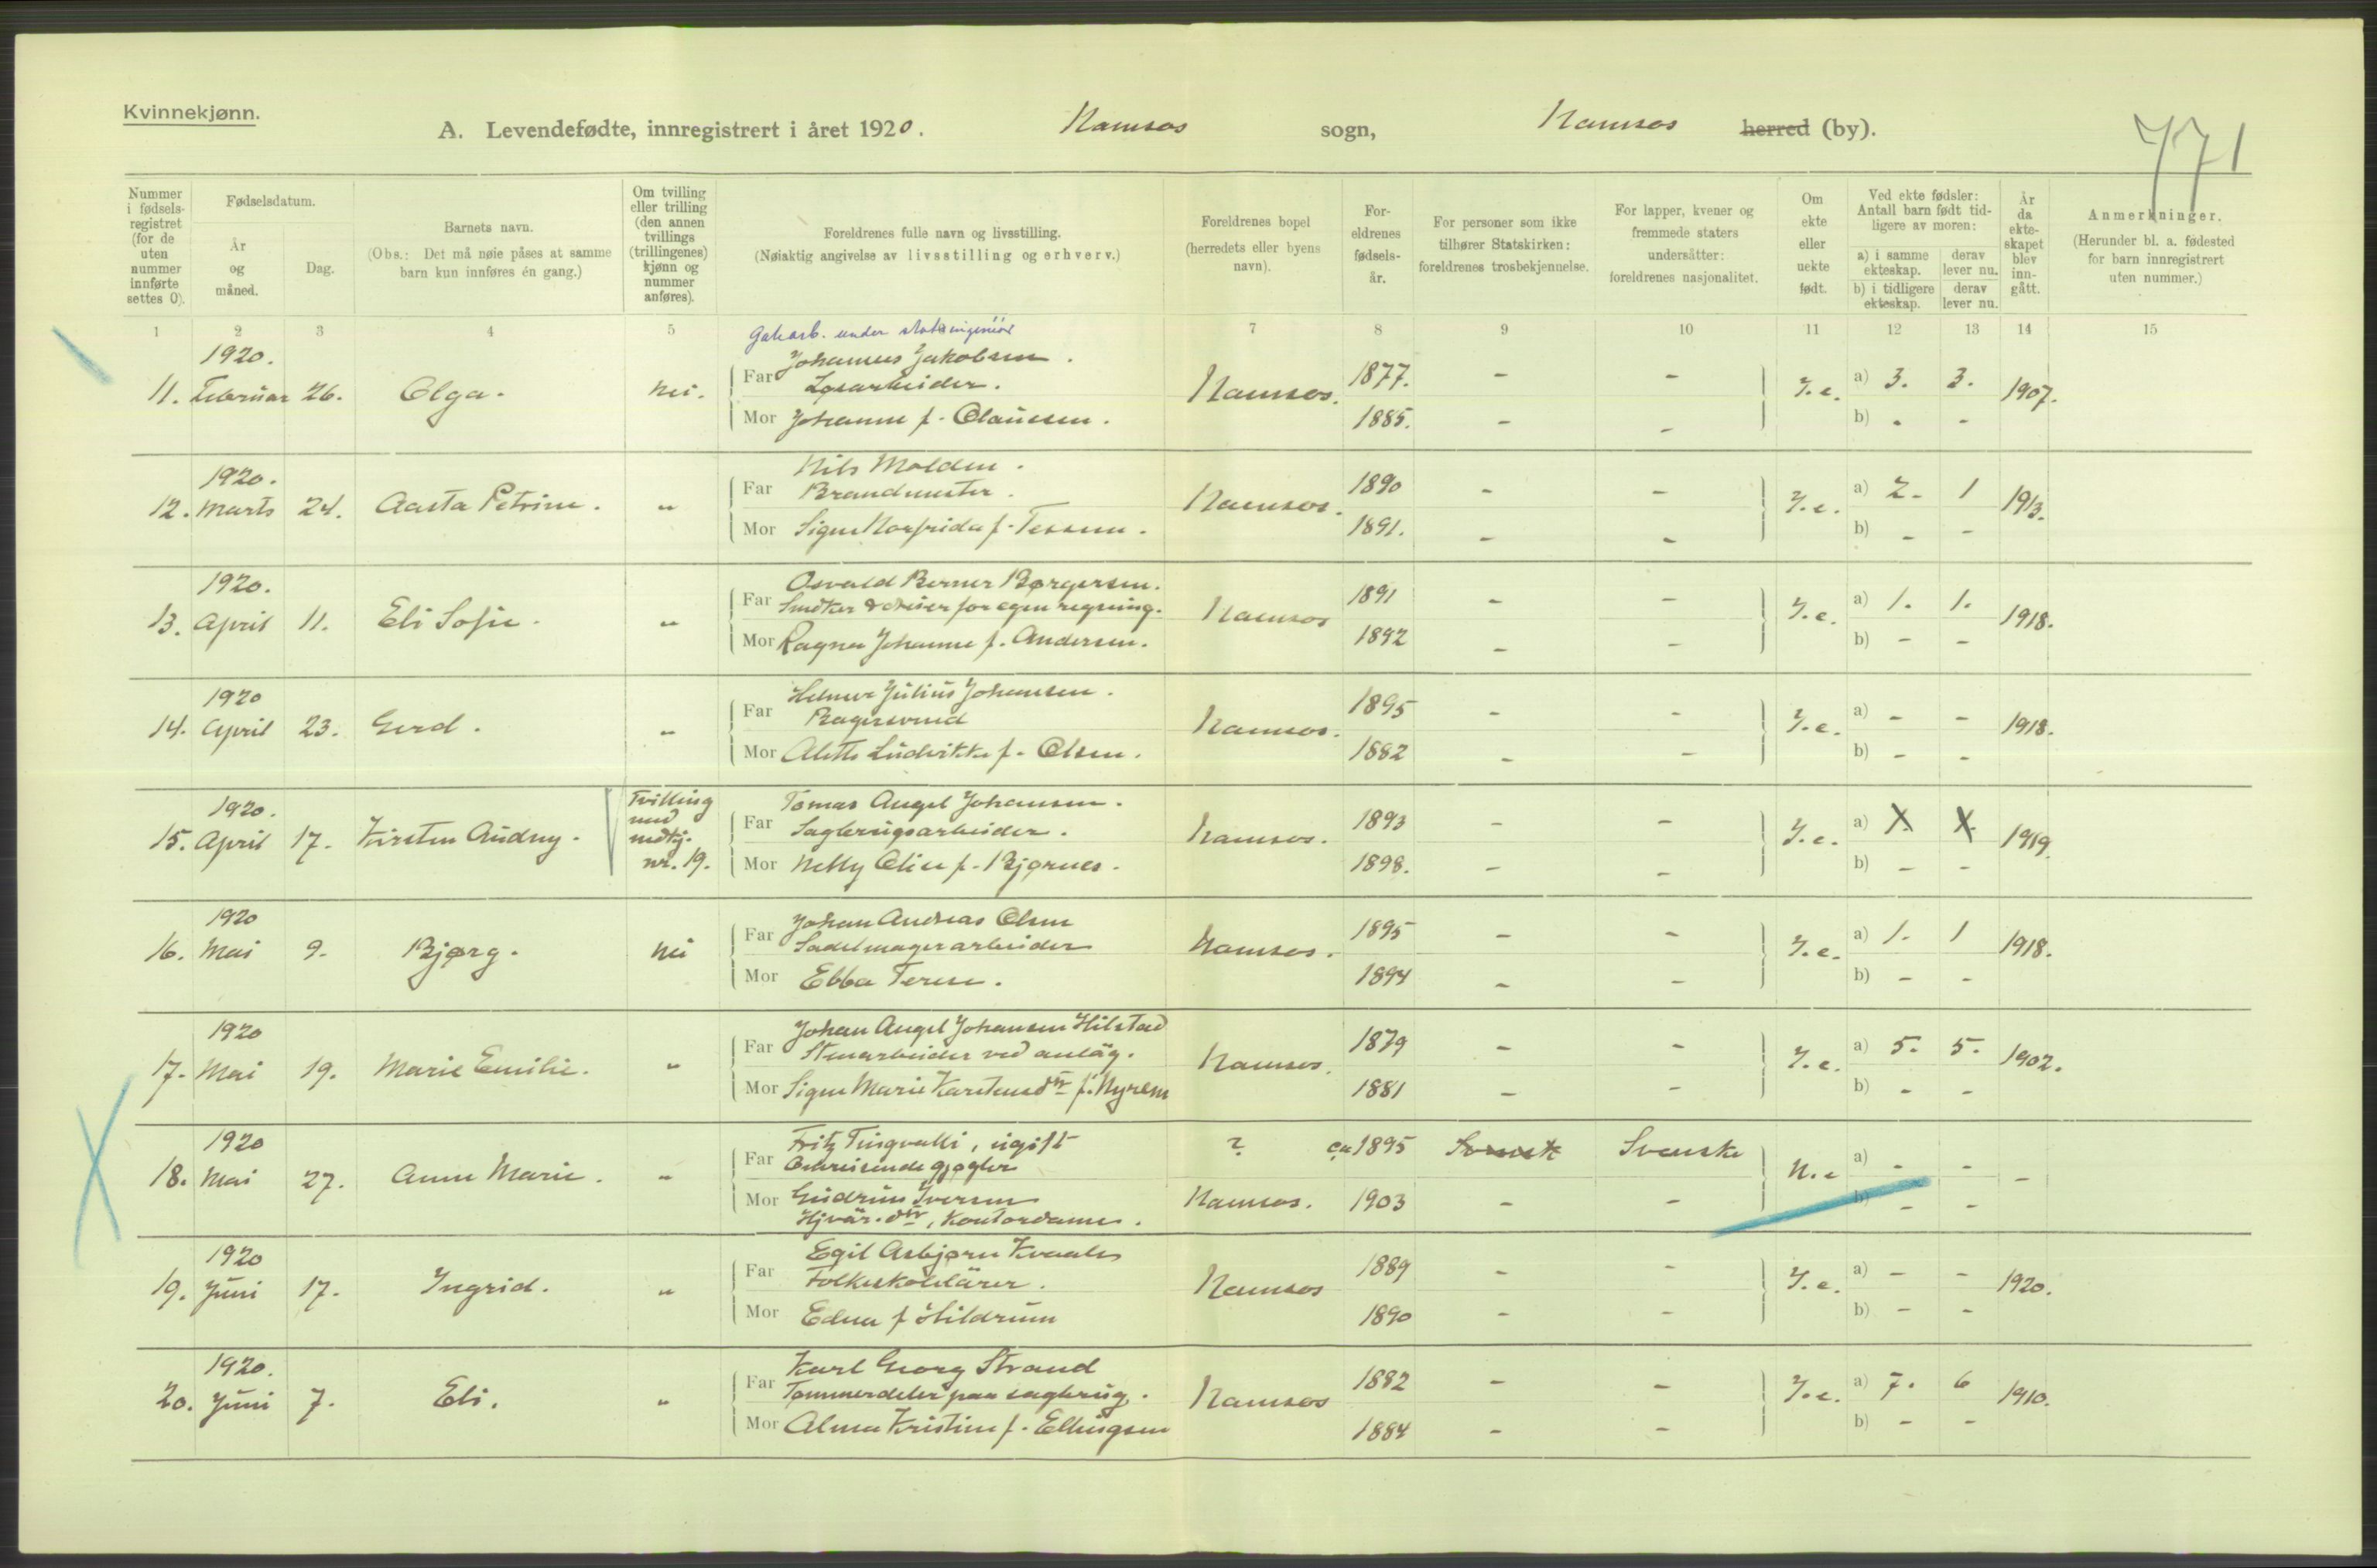 Kvinnekjønn.
A. Levendefødte, innregistrert i året 1920. Namsos sogn, Namsos herred (by).
771
Nummer i fødselsregistret (for de uten nummer innførte settes 0).
Fødselsdatum.
År og måned.
Dag.
Barnets navn.
(Obs.: Det må nøie påses at samme barn kun innføres én gang.)
Om tvilling eller trilling (den annen tvillings (trillingenes) kjønn og nummer anføres).
Foreldrenes fulle navn og livsstilling.
(Nøiaktig angivelse av livsstilling og erhverv.)
Foreldrenes bopel (herredets eller byens navn).
Foreldrenes fødselsår.
For personer som ikke tilhører Statskirken: foreldrenes trosbekjennelse.
For lapper, kvener og fremmede staters undersåtter: foreldrenes nasjonalitet.
Om ekte eller uekte født.
Ved ekte fødsler: Antall barn født tidligere av moren:
a) i samme ekteskap. derav lever nu.
b) i tidligere ekteskap. derav lever nu.
År da ekteskapet blev inngått.
Anmerkninger.
(Herunder bl. a. fødested for barn innregistrert uten nummer.)
1 2 3 4 5 7 8 9 10 11 12 13 14 15
Gatearb. under stadsingeniør
1920. Johannes Jakobsen.
11. Februar 26. Olga. Nei. Far Løsarbeider. Namsos. 1877. - - J.e. a) 3. 3. 1907.
Mor Johanne f. Claussen. 1885. - - b) - -
1920. Nils Molden.
12. Marts 24. Aasta Petrine. " Far Brandmester. Namsos. 1890 - - J.e. a) 2. 1 1913.
Mor Signe Norfrida f. Tessem. 1891. - - b) - -
1920. Osvald Berner Børgersen.
13. April 11. Eli Sofie. " Far for egen regning. Namsos 1891 - - J.e. a) 1. 1. 1918.
Mor Ragna Johanne f. Andersen. 1892 - - b) - -
1920 Helmer Julius Johansen.
14. April 23. Gerd. " Far Bagersvend Namsos. 1895 - - J.e. a) - - 1918.
Mor Aletta Ludvikka f. Olsen. 1882 - - b) - -
1920. Tvilling med Tomas Angel Johansen.
15. April 17. Kirsten Audny. Far Sagbrugsarbeider. Namsos. 1893 - - J.e. a) X X 1919.
nr. 19. Mor Nelly Elise f. Bjørnes. 1898. - - b) - -
1920 Johan Andreas Olsen
16. Mai 9. Bjørg. Nei Far Sadelmagerarbeider Namsos. 1895 - - J.e. a) 1. 1 1918.
Mor Ebba Terese. 1894 - - b) - -
1920 Johan Angel Johansen Hilstad
17. Mai 19. Marie Emilie. " Far Stenarbeider ved anlæg. Namsos. 1879 - - J.e. a) 5. 5. 1902.
Mor Signe Marie Karstensdtr f. Myrem 1881 - - b) - -
1920 Fritz Tingvalli, ugift ? ca 1895 Svensk Svenske
18. Mai 27. Anne Marie. " Far Omreisende gjøgler N.e a) - - -
Mor Gudrun Iversen Namsos. 1903 - - b) - -
Hjvær. dtr, Kontordame.
1920 Egil Asbjørn Kvaale
19. Juni 17. Ingrid. " Far Folkeskolelærer. Namsos 1889 - - J.e. a) - - 1920.
Mor Edna f Hildrum 1890 - - b) - -
1920. Karl Georg Strand
20. Juni 7. Eli. " Far Tømmerdeler paa sagbrug. Namsos 1882 - - J.e. a) 7. 6 1910.
Mor Alma Kristine f. Ellingsen 1884 - - b) - -